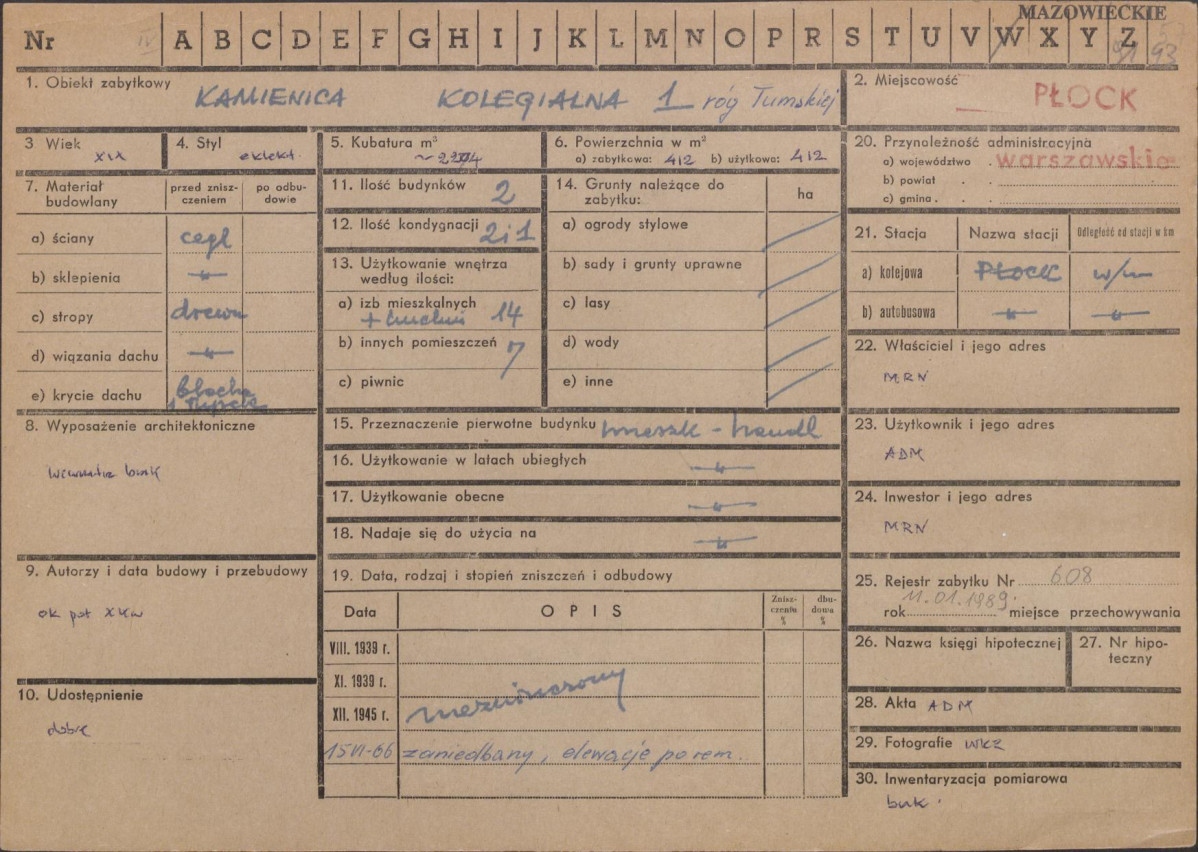 MAZOWIECKIE
Nr IV A B C D E F G H I J K L M N O P R S T U V W X Y Z 93
1. Obiekt zabytkowy KAMIENICA KOLEGIALNA 1 róg Tumskiej
2. Miejscowość PŁOCK
3 Wiek XIX
4. Styl eklekt.
5. Kubatura m³
6. Powierzchnia w m²
a) zabytkowa: 412 b) użytkowa: 412
7. Materiał budowlany
przed zniszczeniem
po odbudowie
a) ściany cegł
b) sklepienia -"-
c) stropy drewn
d) wiązania dachu -"-
e) krycie dachu blacha
8. Wyposażenie architektoniczne
wewnątrz brak
9. Autorzy i data budowy i przebudowy
ok poł XIXw
10. Udostępnienie
dobre
11. Ilość budynków 2
12. Ilość kondygnacji 2 i 1
13. Użytkowanie wnętrza
według ilości:
a) izb mieszkalnych 14
+ kuchni
b) innych pomieszczeń 7
c) piwnic
14. Grunty należące do
zabytku:
ha
a) ogrody stylowe
b) sady i grunty uprawne
c) lasy
d) wody
e) inne
15. Przeznaczenie pierwotne budynku mieszk - handl
16. Użytkowanie w latach ubiegłych -"-
17. Użytkowanie obecne -"-
18. Nadaje się do użycia na -"-
19. Data, rodzaj i stopień zniszczeń i odbudowy
Data OPIS Zniszczenia % dbudowa %
VIII. 1939 r.
XI. 1939 r.
XII. 1945 r. niezniszczony
15 VI-66 zaniedbany, elewacje po rem.
20. Przynoleżność administracyjna
a) województwo . warszawskie
b) powiat . .
c) gmina . .
21. Stacja Nazwa stacji Odległość od stacji w km
a) kolejowa PŁOCK w/m
b) autobusowa -"- -"-
22. Właściciel i jego adres
MRN
23. Użytkownik i jego adres
ADM
24. Inwestor i jego adres
MRN
25. Rejestr zabytku Nr 608
rok 11.01.1989. miejsce przechowywania
26. Nazwa księgi hipotecznej
27. Nr hipoteczny
28. Akta ADM
29. Fotografie WKZ
30. Inwentaryzacja pomiarowa
brak.